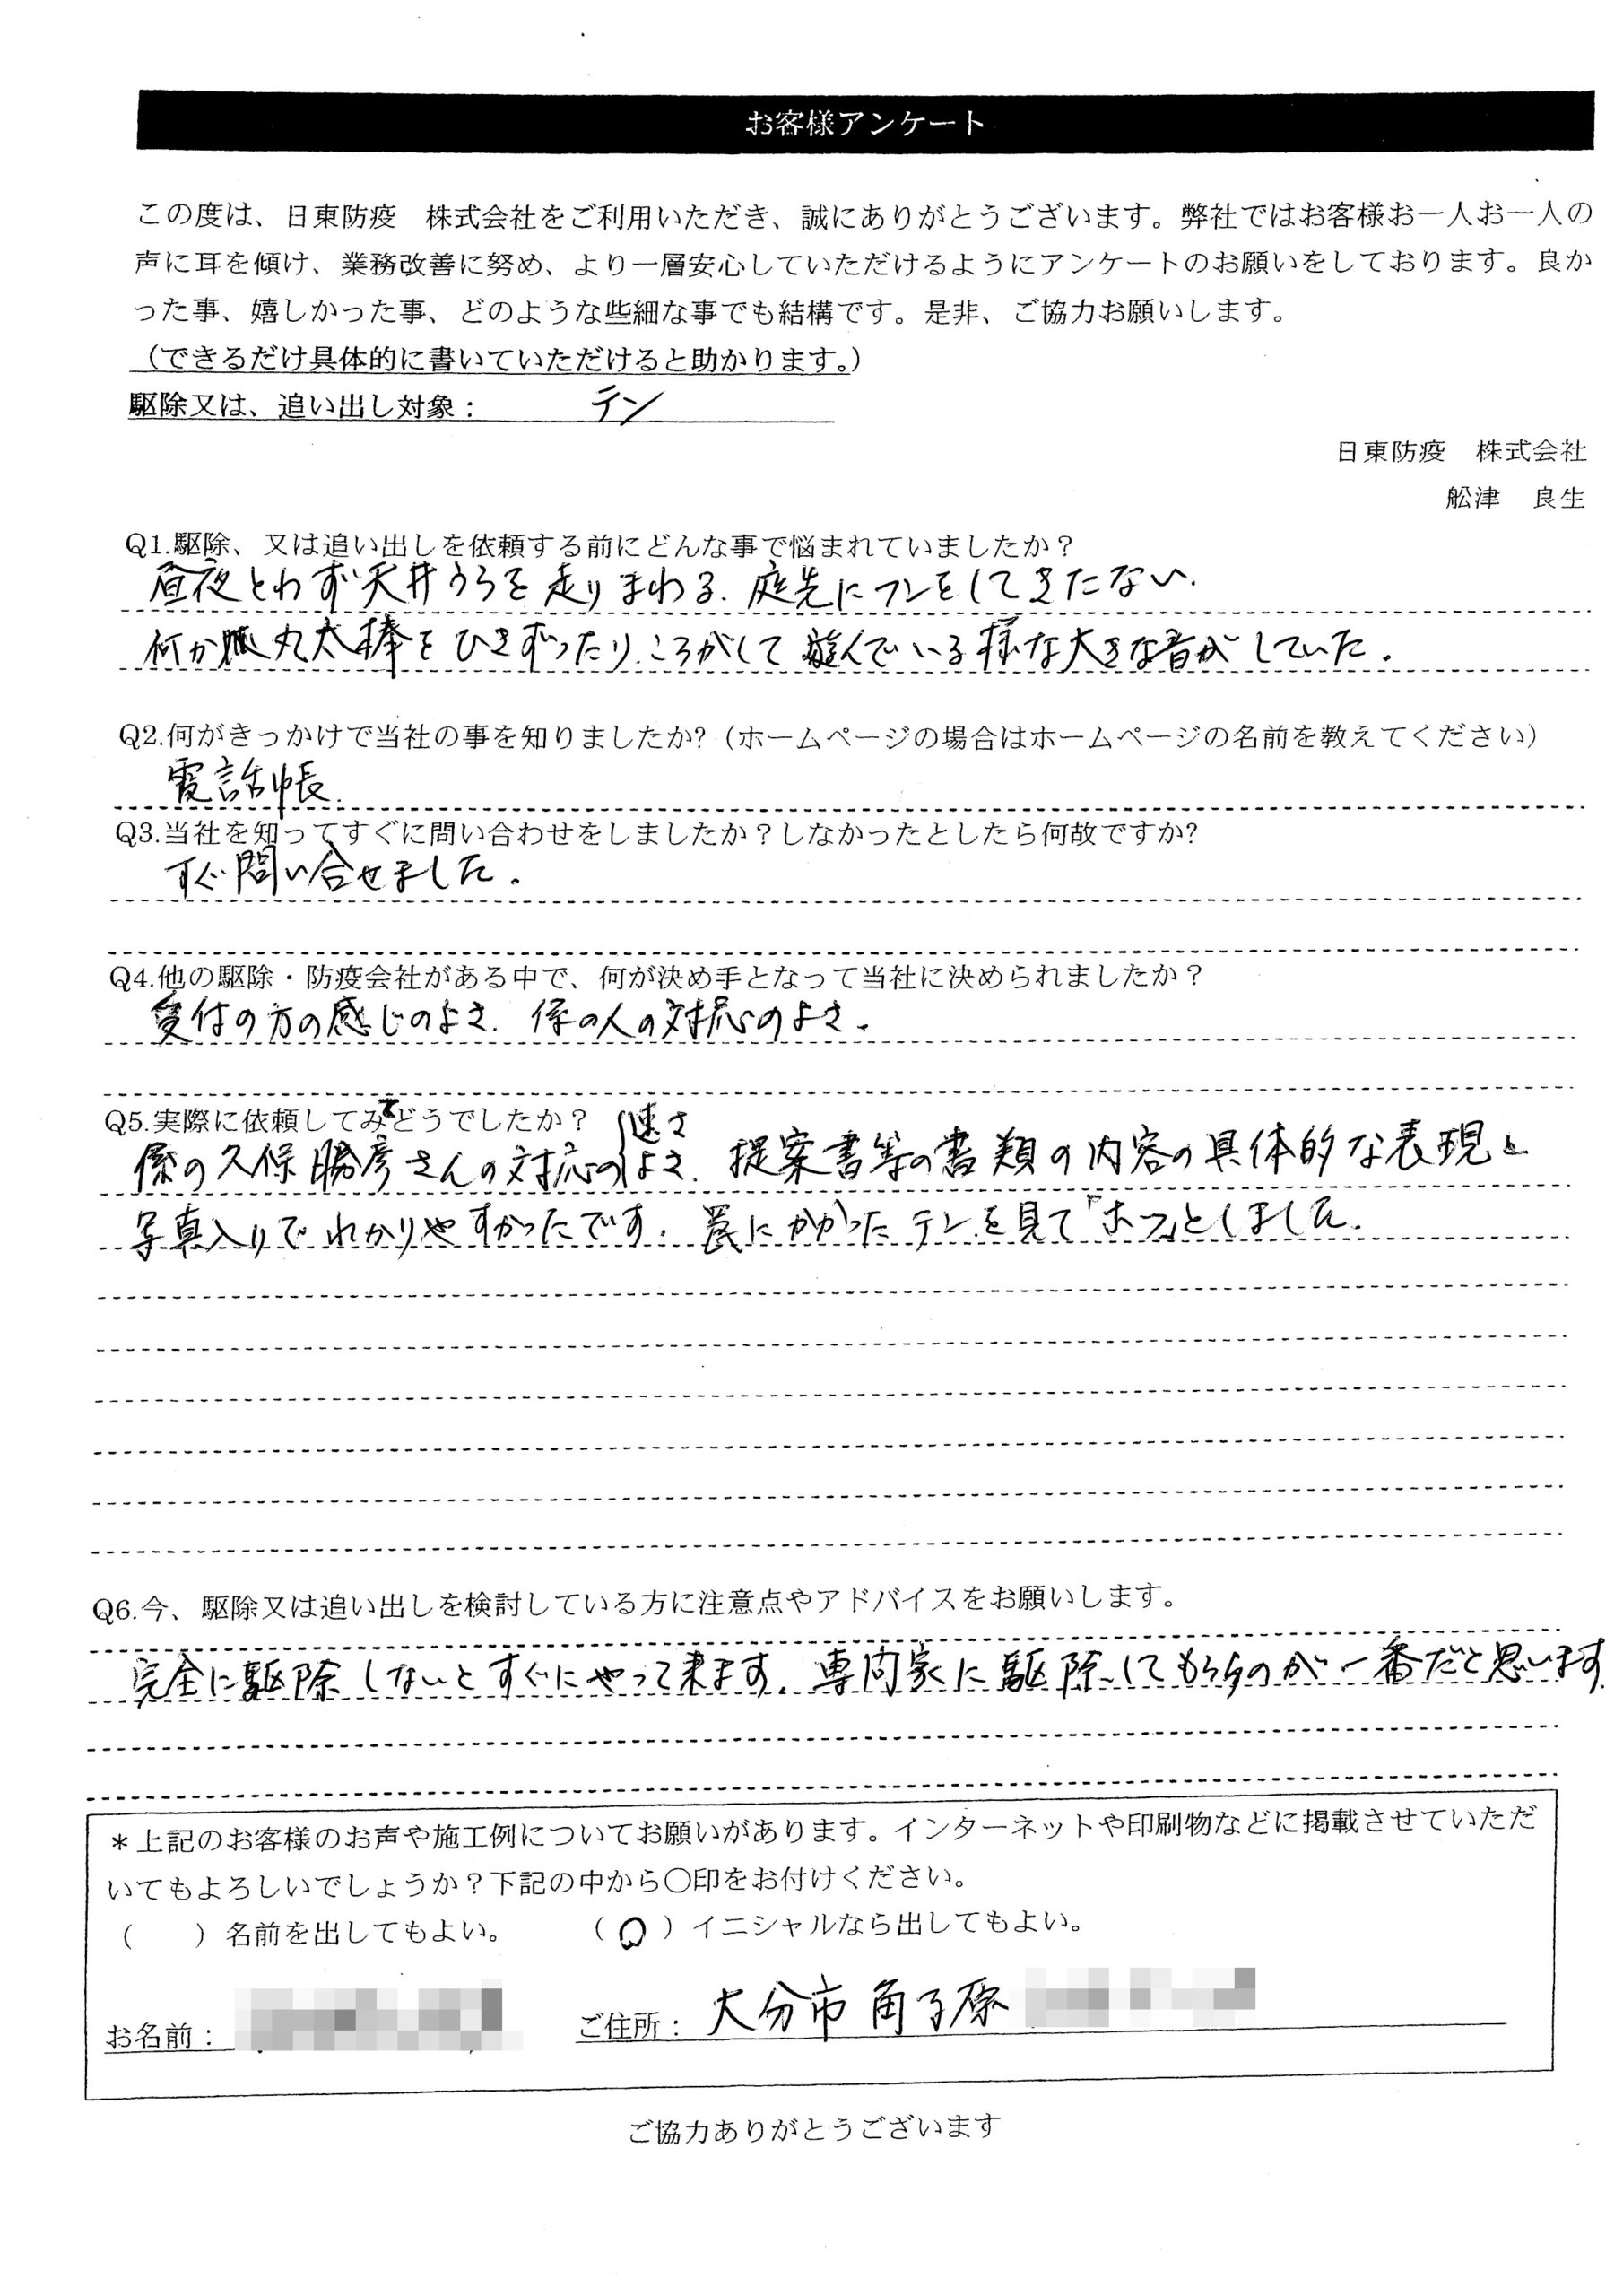 お客様アンケート
この度は、日東防疫　株式会社をご利用いただき、誠にありがとうございます。弊社ではお客様お一人お一人の
声に耳を傾け、業務改善に努め、より一層安心していただけるようにアンケートのお願いをしております。良か
った事、嬉しかった事、どのような些細な事でも結構です。是非、ご協力お願いします。
（できるだけ具体的に書いていただけると助かります。）
駆除又は、追い出し対象：　テン
日東防疫　株式会社
舩津　良生
Q1.駆除、又は追い出しを依頼する前にどんな事で悩まれていましたか？
昼夜とわず天井うらを走りまわる。庭先にフンをしてきたない。
何か丸太棒をひきずったりころがして遊んでいる様な大きな音がしていた。
Q2.何がきっかけで当社の事を知りましたか?（ホームページの場合はホームページの名前を教えてください）
電話帳
Q3.当社を知ってすぐに問い合わせをしましたか？しなかったとしたら何故ですか?
すぐ問い合せました。
Q4.他の駆除・防疫会社がある中で、何が決め手となって当社に決められましたか？
受付の方の感じのよさ。係の人の対応のよさ。
Q5.実際に依頼してみてどうでしたか？
速さ
係の久保勝彦さんの対応のよさ。提案書等の書類の内容の具体的な表現と
写真入りでわかりやすかったです。罠にかかったテンを見て「ホッ」としました。
Q6.今、駆除又は追い出しを検討している方に注意点やアドバイスをお願いします。
完全に駆除しないとすぐにやって来ます。専門家に駆除してもらうのが一番だと思います。
＊上記のお客様のお声や施工例についてお願いがあります。インターネットや印刷物などに掲載させていただ
いてもよろしいでしょうか？下記の中から〇印をお付けください。
（　　）名前を出してもよい。　　（○）イニシャルなら出してもよい。
お名前：　ご住所：大分市角子原
ご協力ありがとうございます